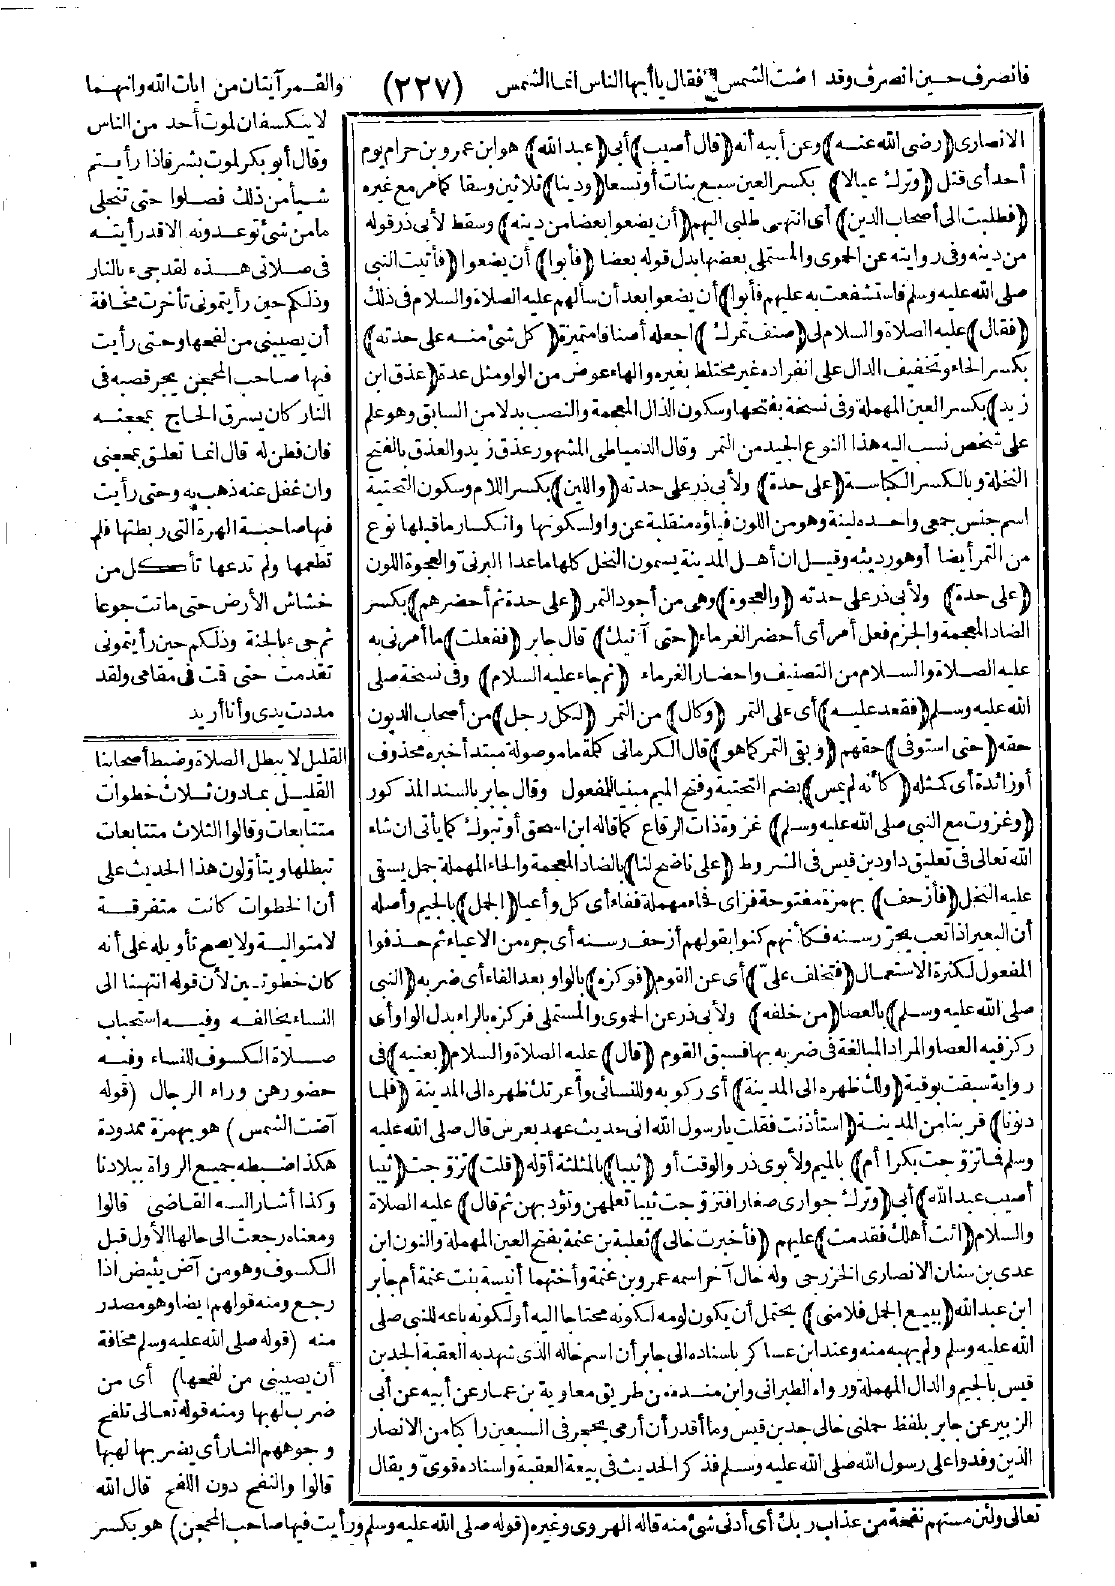 فانصرف حين انصرف وقد اضت الشمس فقال يا أيها الناس انما الشمس (٢٢٧) والقمر آيتان من ايات الله وانهما
لا ينكسفان لموت أحد من الناس
وقال أبو بكر لموت بشر فاذا رأيتم
شيأ من ذلك فصلوا حتى تنجلى
ما من شئ توعدونه الا قد رأيته
فى صلاتى هذه لقد جىء بالنار
وذلكم حين رأيتمونى تأخرت مخافة
أن يصيبنى من لفحها وحتى رأيت
فيها صاحب المحجن يجر قصبه فى
النار كان يسرق الحاج بمحجنه
فان فطن له قال انما تعلق بمحجنى
وان غفل عنه ذهب به وحتى رأيت
فيها صاحبة الهرة التى ربطتها فلم
تطعمها ولم تدعها تأكل من
خشاش الأرض حتى ماتت جوعا
ثم جىء بالجنة وذلكم حين رأيتمونى
تقدمت حتى قمت فى مقامى ولقد
مددت يدى وأنا أريد
الانصارى (رضى الله عنه) وعن أبيه أنه (قال أصيب) أبى (عبد الله) هو ابن عمرو بن حرام يوم
أحد أى قتل (وترك عيالا) بكسر العين سبع بنات أو تسعا (ودينا) ثلاثين وسقا كما مر مع غيره
(فطلبت الى أصحاب الدين) أى انتهى طلبى اليهم (أن يضعوا بعضا من دينه) وسقط لأبى ذر قوله
من دينه وفى روايته عن الحموى والمستملى بعضها بدل قوله بعضا (فأبوا) أن يضعوا (فأتيت النبى
صلى الله عليه وسلم فاستشفعت به عليهم فأبوا) أن يضعوا بعد أن سألهم عليه الصلاة والسلام فى ذلك
(فقال) عليه الصلاة والسلام لى (صنف تمرك) اجعله أصنافا متميزة (كل شئ منه على حدته)
بكسر الحاء وتخفيف الدال على انفراده غير مختلط بغيره والهاء عوض من الواو مثل عدة (عذق ابن
زيد) بكسر العين المهملة وفى نسخة بفتحها وسكون الذال المعجمة والنصب بدلا من السابق وهو علم
على شخص نسب اليه هذا النوع الجيد من التمر وقال الدمياطى المشهور عذق زيد والعذق بالفتح
النخلة وبالكسر الكباسة (على حدة) ولأبى ذر على حدته (واللين) بكسر اللام وسكون التحتية
اسم جنس جمعى واحده لينة وهو من اللون فياؤه منقلبة عن واو لسكونها وانكسار ما قبلها نوع
من التمر أيضا أو هو رديئه وقيل ان أهل المدينة يسمون النخل كلها ما عدا البرنى والعجوة اللون
(على حدة) ولأبى ذر على حدته (والعجوة) وهى من أجود التمر (على حدة ثم أحضرهم) بكسر
الضاد المعجمة والجزم فعل أمر أى أحضر الغرماء (حتى آتيك) قال جابر (ففعلت) ما أمرنى به
عليه الصلاة والسلام من التصنيف واحضار الغرماء (ثم جاء عليه السلام) وفى نسخة صلى
الله عليه وسلم (فقعد عليه) أى على التمر (وكال) من التمر (لكل رجل) من أصحاب الديون
حقه (حتى استوفى) حقهم (وبقى التمر كما هو) قال الكرمانى كلمة ما موصولة مبتدأ خبره محذوف
أو زائدة أى كمثله (كأنه لم يمس) بضم التحتية وفتح الميم مبنيا للمفعول وقال جابر بالسند المذكور
(وغزوت مع النبى صلى الله عليه وسلم) غزوة ذات الرقاع كما قاله ابن اسحق أو تبوك كما يأتى ان شاء
الله تعالى فى تعليق داود بن قيس فى الشروط (على ناضح لنا) بالضاد المعجمة والحاء المهملة جمل يسقى
عليه النخل (فأزحف) بهمزة مفتوحة فزاى فحاء مهملة ففاء أى كل وأعيا (الجمل) بالجيم وأصله
أن البعير اذا تعب يجر رسنه فكأنهم كنوا بقولهم أزحف رسنه أى جره من الاعياء ثم حذفوا
المفعول لكثرة الاستعمال (فتخلف على) أى عن القوم (فوكزه) بالواو بعد الفاء أى ضربه (النبى
صلى الله عليه وسلم) بالعصا (من خلفه) ولأبى ذر عن الحموى والمستملى فركزه بالراء بدل الواو أى
ركز فيه العصا والمراد المبالغة فى ضربه بها فسبق القوم (قال) عليه الصلاة والسلام (بعنيه) فى
رواية سبقت بوقية (ولك ظهره الى المدينة) أى ركوبه وللنسائى وأعرتك ظهره الى المدينة (فلما
دنونا) قربنا من المدينة (استأذنت فقلت يا رسول الله انى حديث عهد بعرس قال صلى الله عليه
وسلم فما تزوجت بكرا أم) بالميم ولأبوى ذر والوقت أو (ثيبا) بالمثلثة أوله (قلت) تزوجت (ثيبا
أصيب عبد الله) أبى (وترك جوارى صغارا فتزوجت ثيبا تعلمهن وتؤدبهن ثم قال) عليه الصلاة
والسلام (ائت أهلك فقدمت) عليهم (فأخبرت خالى) ثعلبة بن عنمة بفتح العين المهملة والنون ابن
عدى بن سنان الانصارى الخزرجى وله خال آخر اسمه عمرو بن عنمة وأختهما أنيسة بنت عنمة أم جابر
ابن عبد الله (ببيع الجمل فلامنى) يحتمل أن يكون لومه لكونه محتاجا اليه أو لكونه باعه للنبى صلى
الله عليه وسلم ولم يهبه منه وعند ابن عساكر باسناده الى جابر أن اسم خاله الذى شهد به العقبة الجد بن
قيس بالجيم والدال المهملة ورواه الطبرانى وابن منده من طريق معاوية بن عمار عن أبيه عن أبى
الزبير عن جابر بلفظ حملنى خالى جد بن قيس وما أقدر أن أرمى بحجر فى السبعين راكبا من الانصار
الذين وفدوا على رسول الله صلى الله عليه وسلم فذكر الحديث فى بيعة العقبة واسناده قوى ويقال
القليل لا يبطل الصلاة وضبط أصحابنا
القليل بما دون ثلاث خطوات
متتابعات وقالوا الثلاث متتابعات
تبطلها ويتأولون هذا الحديث على
أن الخطوات كانت متفرقة
لا متوالية ولا يصح تأويله على أنه
كان خطوتين لأن قوله انتهينا الى
النساء يخالفه وفيه استحباب
صلاة الكسوف للنساء وفيه
حضورهن وراء الرجال (قوله
آضت الشمس) هو بهمزة ممدودة
هكذا ضبطه جميع الرواة ببلادنا
وكذا أشار اليه القاضى قالوا
ومعناه رجعت الى حالها الأول قبل
الكسوف وهو من آض يئيض اذا
رجع ومنه قولهم أيضا وهو مصدر
منه (قوله صلى الله عليه وسلم مخافة
أن يصيبنى من لفحها) أى من
ضرب لهبها ومنه قوله تعالى تلفح
وجوههم النار أى يضربها لهبها
قالوا والنفح دون اللفح قال الله
تعالى ولئن مستهم نفحة من عذاب ربك أى أدنى شئ منه قاله الهروى وغيره (قوله صلى الله عليه وسلم ورأيت فيها صاحب المحجن) هو بكسر